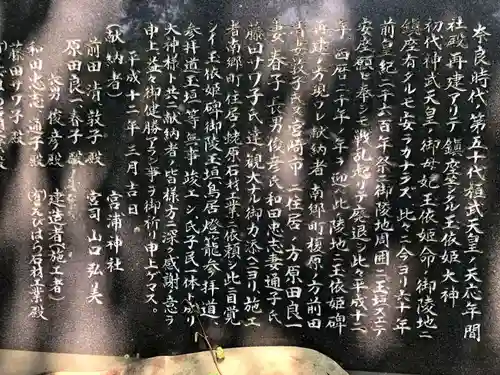 奈良時代第五十代桓武天皇ノ天応年間
社殿再建アリテ鎮座シタル玉依姫大神
初代神武天皇ノ御母妃玉依姫命ノ御陵地ニ
鎮座有タルモ安ラカナラズ此々ニ今ヨリ六十年
前皇紀二千六百年祭ニ御陵地周囲ニ玉垣スエテ
安座願ヒ奉シモ戦乱起リテ癈退シ此々平成十二
年西暦二千年ノ年ヲ迎ヘ此ノ陵地ニ玉依姫碑
再建ノ方現ワレ献納者南郷町榎原ノ方前田
清妻敦子氏宮崎市ニ住居ノ方原田良一
妻春子長男俊彦氏和田忠志妻通子氏
藤田サワ子氏達ノ観大ナル御力添ヘニヨリ施工
者南郷町住居ノ蛯原石材工業ニ依頼シ此ニ自覚
シイ玉依姫碑御陵玉垣鳥居燈籠参拝道
参拝道玉垣等無事竣エシ氏子民一体ト成リ
大神様ト共ニ献納者ノ皆様方ニ深ク感謝意ヲ
申上益々御健勝アラン事ヲ御祈リ申上ゲマス。
平成十二年三月吉日
(献納者) 宮浦神社
前田清敦子殿 宮司 山口弘美
原田良一春子殿
長男俊彦殿 建造者(施工者)
和田忠志通子殿 (有)えびはら石材工業殿
藤田サワ子殿